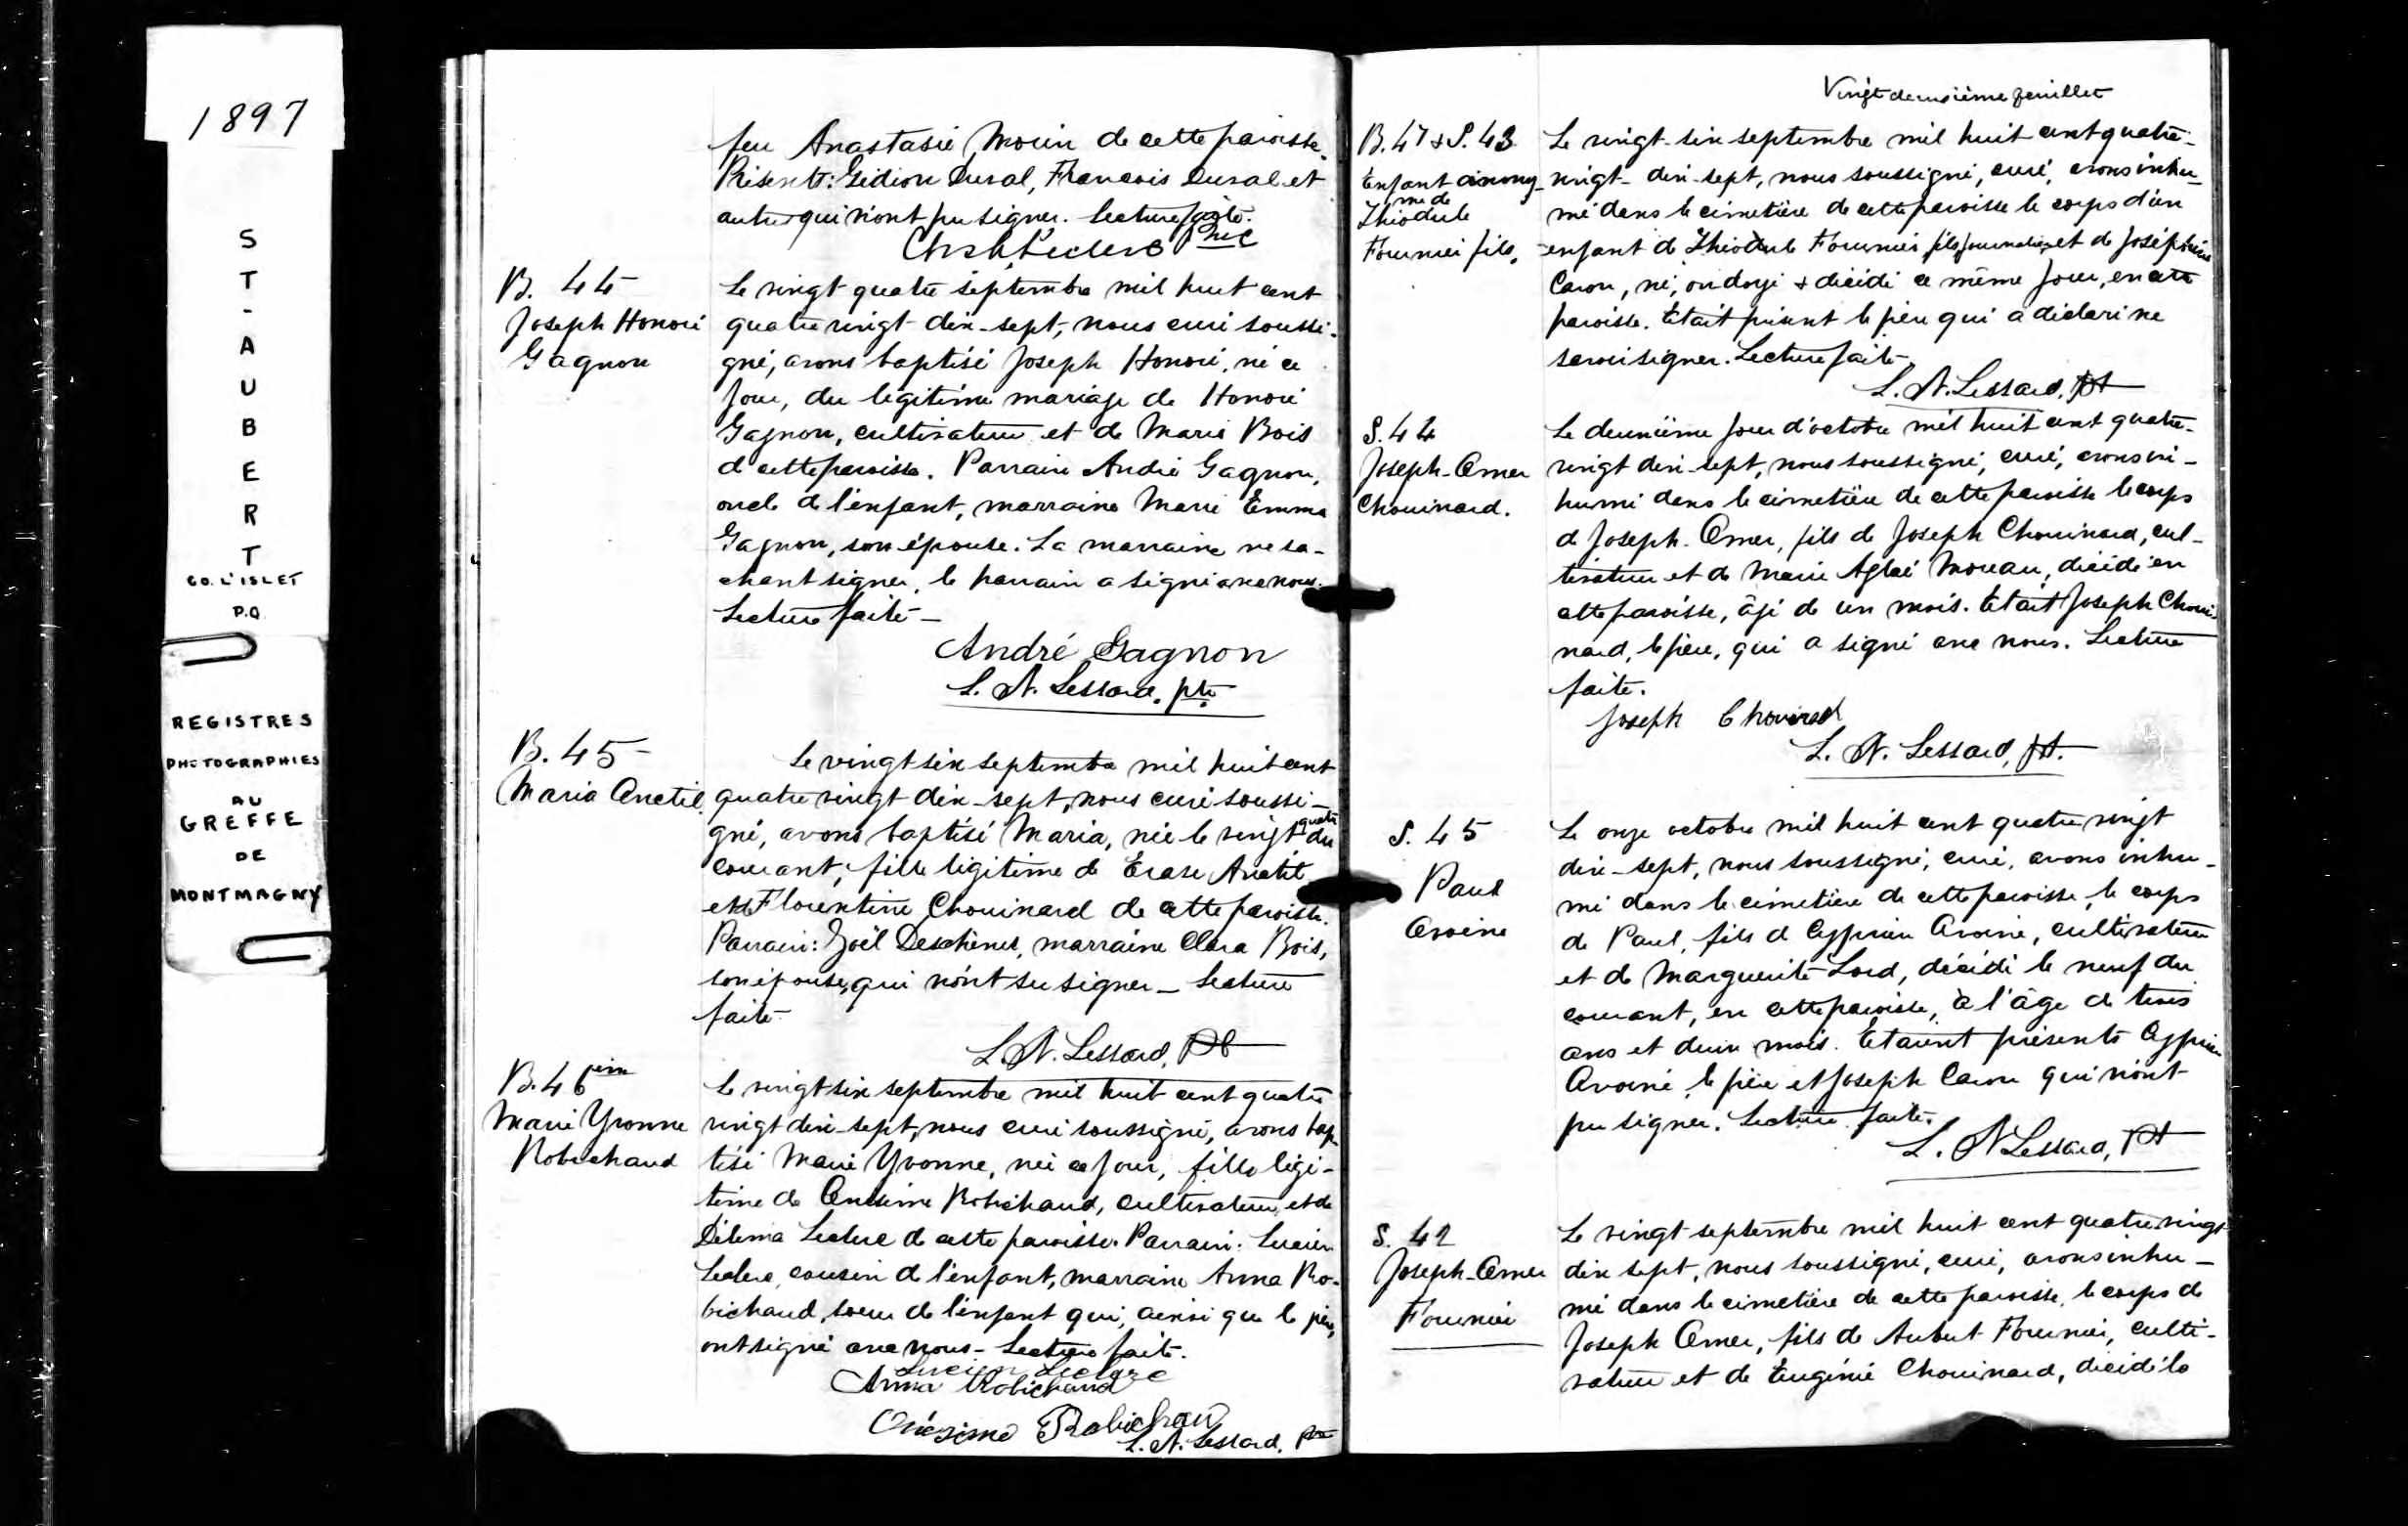 1897
ST-AUBERT
CO. L'ISLET
P.Q
REGISTRES
PHOTOGRAPHIES
AU
GREFFE
DE
MONTMAGNY
feu Anastasie Morin de cette paroisse.
Présents: Gédéon Duval, François Duval et
autres qui n'ont pu signer. Lecture faite.
Chs Leclerc Ptre
B. 44
Joseph Honoré
Gagnon
Le vingt quatre septembre mil huit cent
quatre vingt dix-sept, nous curé soussi-
gné, avons baptisé Joseph Honoré, né ce
jour, du légitime mariage de Honoré
Gagnon, cultivateur et de Marie Bois
de cette paroisse. Parrain André Gagnon,
oncle de l'enfant, marraine Marie Emma
Gagnon, son épouse. La marraine ne sa-
chant signer, le parrain a signé avec nous.
Lecture faite -
André Gagnon
L. N. Lessard, ptre
B. 45 -
Maria Anctil
Le vingt six septembre mil huit cent
quatre vingt dix-sept, nous curé soussi-
gné, avons baptisé Maria, née le vingt quatre du
courant, fille légitime de Erase Anctil
et de Florentine Chouinard de cette paroisse.
Parrain: Joël Deschênes, marraine Clara Bois,
son épouse, qui n'ont su signer - Lecture
faite -
L. N. Lessard, Pt
B. 46 ème
Marie Yvonne
Robichaud
Le vingt six septembre mil huit cent quatre
vingt dix-sept, nous curé soussigné, avons bap-
tisé Marie Yvonne, née ce jour, fille légi-
time de Onésime Robichaud, cultivateur, et de
Délima Leclerc de cette paroisse. Parrain: Lucien
Leclerc, cousin de l'enfant, marraine Anna Ro-
bichaud, soeur de l'enfant qui, ainsi que le père,
ont signé avec nous - Lecture faite.
Lucien Leclerc
Anna Robichaud
Onésime Robichau
L. N. Lessard, ptre
Vingt deuxième feuillet
B. 47 & S. 43
Enfant anony-
me de
Théodule
Fournier fils.
Le vingt-six septembre mil huit cent quatre-
vingt-dix-sept, nous soussigné, curé, avons inhu-
mé dans le cimetière de cette paroisse le corps d'un
enfant de Théodule Fournier fils journalier et de Joséphine
Caron, né, ondoyé & décédé ce même jour, en cette
paroisse. Etait présent le père qui a déclaré ne
savoir signer. Lecture faite -
L. N. Lessard, pt
S. 44
Joseph-Omer
Chouinard.
Le deuxième jour d'octobre mil huit cent quatre-
vingt dix-sept, nous soussigné, curé, avons in-
humé dans le cimetière de cette paroisse le corps
de Joseph-Omer, fils de Joseph Chouinard, cul-
tivateur et de Marie Aglaé Moreau, décédé en
cette paroisse, âgé de un mois. Etait Joseph Choui-
nard, le père, qui a signé avec nous. Lecture
faite.
Joseph Chouinard
L. N. Lessard, pt.
S. 45
Paul
Avoine
Le onze octobre mil huit cent quatre vingt
dix-sept, nous soussigné, curé, avons inhu-
mé dans le cimetière de cette paroisse, le corps
de Paul, fils de Cyprien Avoine, cultivateur
et de Marguerite Lord, décédé le neuf du
courant, en cette paroisse, à l'âge de trois
ans et deux mois. Etaient présents Cyprien
Avoine, le père et Joseph Caron qui n'ont
pu signer. Lecture faite.
L. N Lessard, Pt
S. 42
Joseph-Omer
Fournier
Le vingt septembre mil huit cent quatre vingt
dix sept, nous soussigné, curé, avons inhu-
mé dans le cimetière de cette paroisse, le corps de
Joseph Omer, fils de Aubert Fournier, culti-
vateur et de Eugénie Chouinard, décédé le